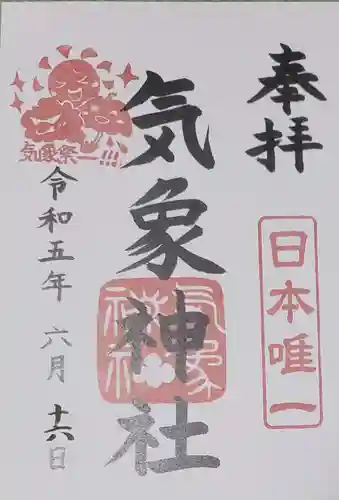 奉拝
日本唯一
気象神社
気象神社
気象祭ー!!!
令和五年 六月 十六日